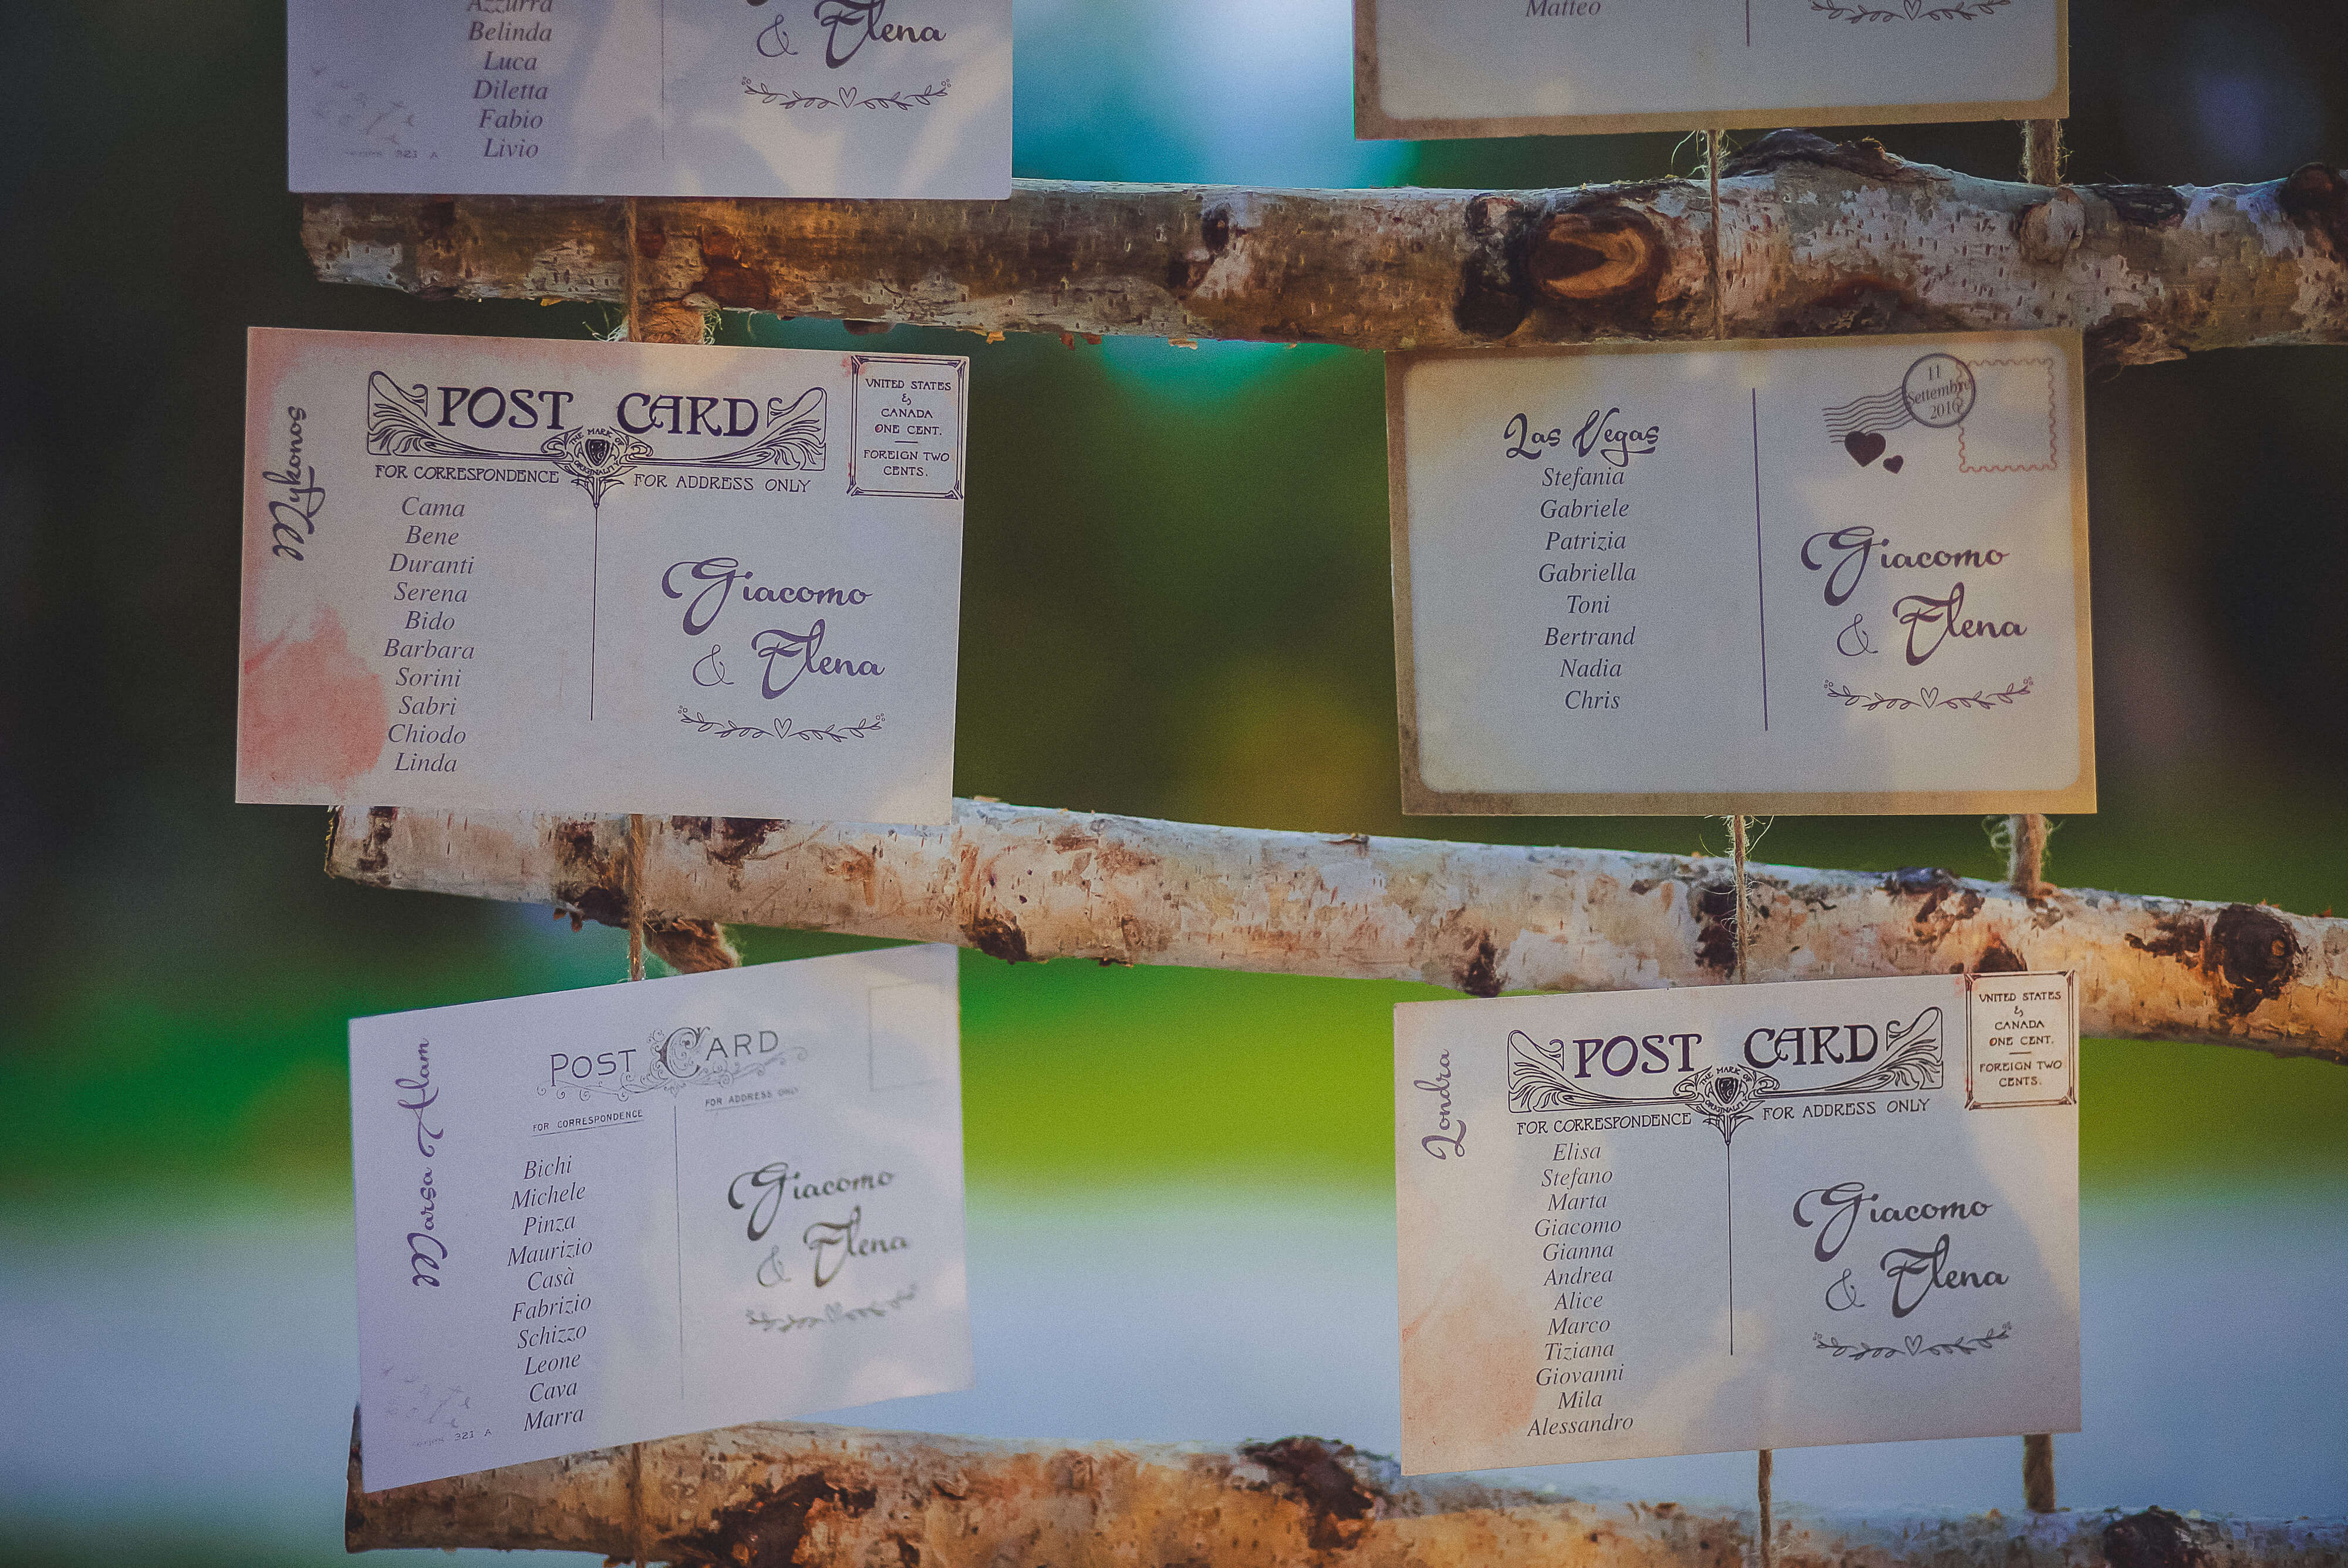 Azzurra
Belinda
Luca
Diletta
Fabio
Livio
321 A
& Elena
Matteo
Mykonos
POST CARD
THE MARK OF
ORIGINALITY
FOR CORRESPONDENCE
FOR ADDRESS ONLY
UNITED STATES
&
CANADA
ONE CENT.
FOREIGN TWO
CENTS.
Cama
Bene
Duranti
Serena
Bido
Barbara
Sorini
Sabri
Chiodo
Linda
Giacomo
& Elena
Las Vegas
Stefania
Gabriele
Patrizia
Gabriella
Toni
Bertrand
Nadia
Chris
11
Settembre
2016
Giacomo
& Elena
Marsa Alam
POST CARD
FOR CORRESPONDENCE
FOR ADDRESS ONLY
Bichi
Michele
Pinza
Maurizio
Casà
Fabrizio
Schizzo
Leone
Cava
Marra
321 A
Giacomo
& Elena
Londra
POST CARD
THE MARK OF
ORIGINALITY
FOR CORRESPONDENCE
FOR ADDRESS ONLY
UNITED STATES
&
CANADA
ONE CENT.
FOREIGN TWO
CENTS.
Elisa
Stefano
Marta
Giacomo
Gianna
Andrea
Alice
Marco
Tiziana
Giovanni
Mila
Alessandro
Giacomo
& Elena